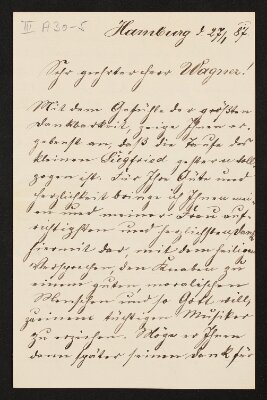 III A 30-5
Hamburg d. 27/1 87.
Sehr geehrter Herr Wagner!
Mit dem Gefühle der größten
Dankbarkeit, zeige Ihnen er-
gebenst an, daß die Taufe des
kleinen Siegfried gestern voll-
zogen ist. Für Ihre Güte und
Herzlichkeit bringe ich Ihnen mei-
nen und meiner Frau auf-
richtigsten und herzlichsten Dank
hiermit dar, mit dem heiligen
Versprechen, den Knaben zu
einem guten, moralischen
Menschen und so Gott will,
zu einem tüchtigen Musiker
zu erziehen. Möge er Ihnen
dann später seinen Dank für